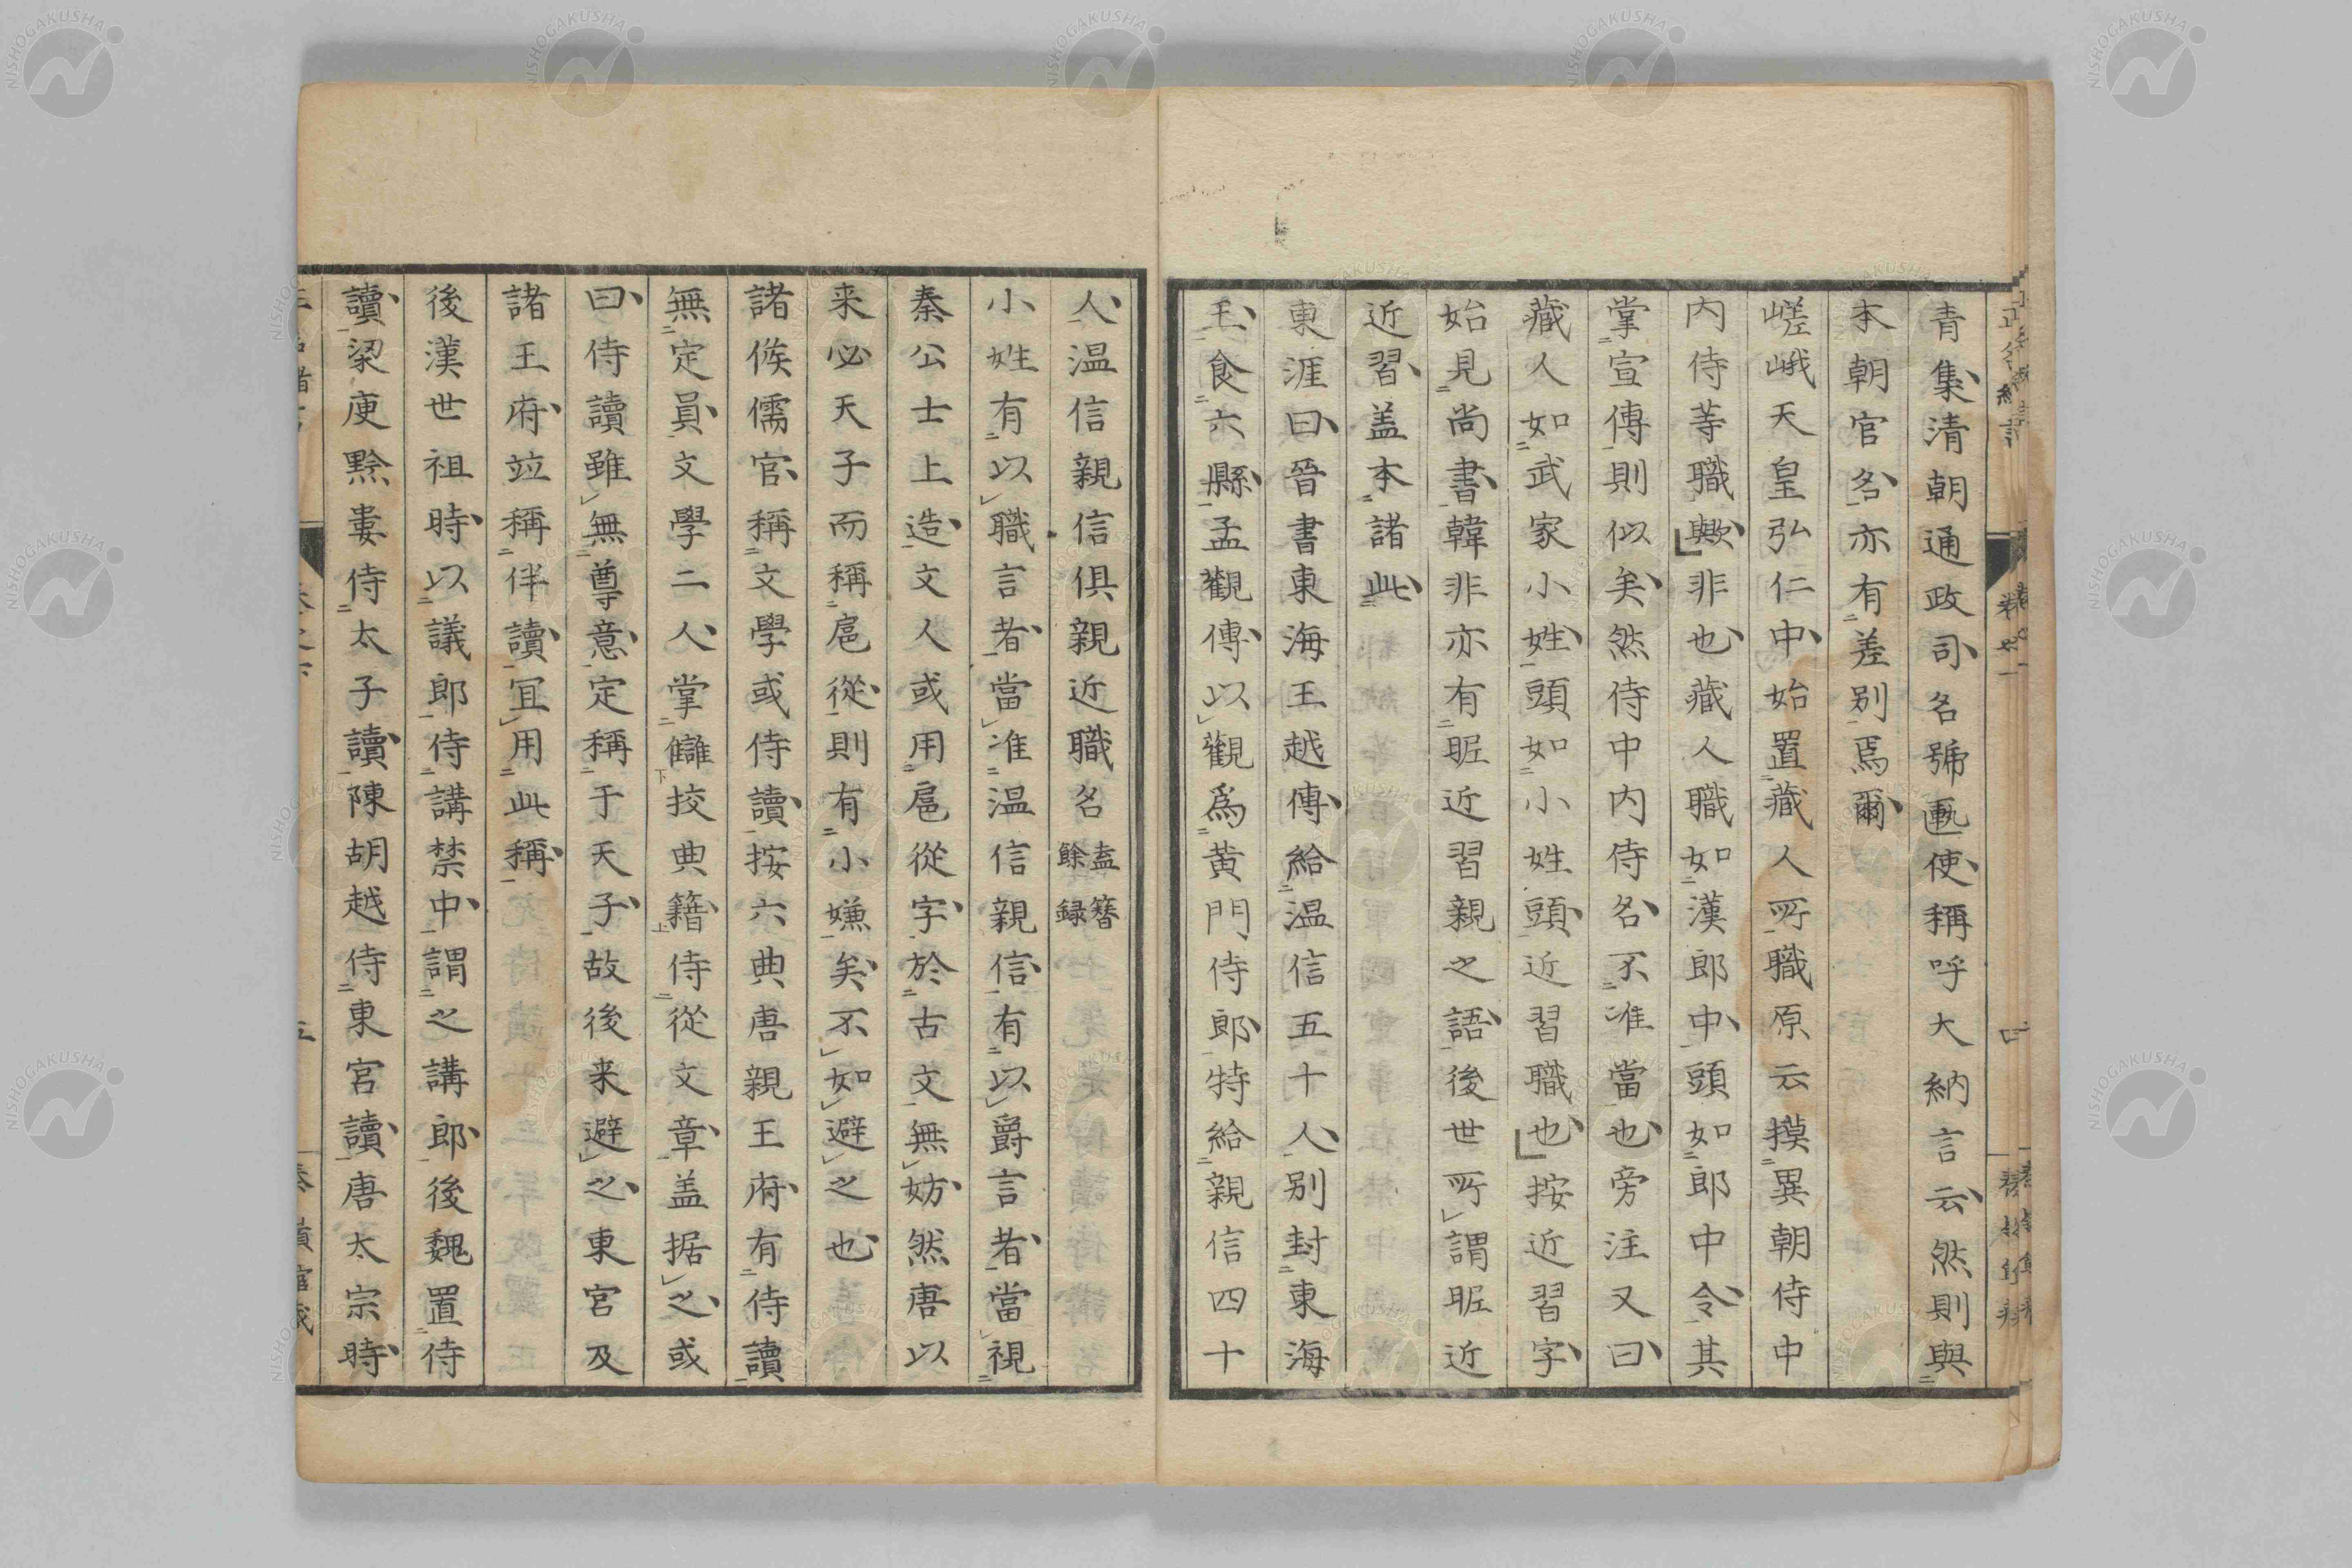 青集清朝通政司名號匭使稱呼大納言云然則與
本朝官名亦有差別焉爾
嵯峨天皇弘仁中始置藏人所職原云摸異朝侍中
內侍等職歟非也藏人職如漢郎中頭如郎中令其
掌宣傳則似矣然侍中內侍名不准當也旁注又曰
藏人如武家小姓頭如小姓頭近習職也按近習字
始見尚書韓非亦有昵近習親之語後世所謂昵近
近習盖本諸此
東涯曰晉書東海王越傳給温信五十人別封東海
王食六縣孟觀傳以觀爲黃門侍郎特給親信四十
人温信親信俱親近職名盍簪餘録
小姓有以職言者當准温信親信有以爵言者當視
秦公士上造文人或用扈從字於古文無妨然唐以
来必天子而稱扈從則有小嫌矣不如避之也
諸侯儒官稱文學或侍讀按六典唐親王府有侍讀
無定員文學二人掌讎挍典籍侍從文章盖据之或
曰侍讀雖無尊意定稱于天子故後来避之東宮及
諸王府竝稱伴讀宜用此稱
後漢世祖時以議郎侍講禁中謂之講郎後魏置侍
讀梁庾黔婁侍太子讀陳胡越侍東宮讀唐太宗時
NISHOGAKUSHA